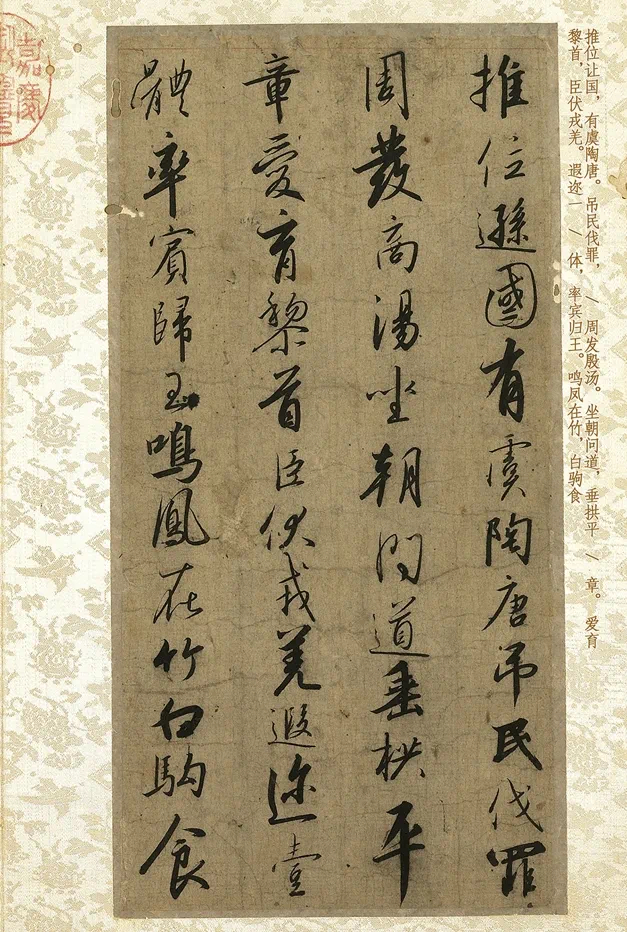 推位让国，有虞陶唐。吊民伐罪，\ 周发殷汤。坐朝问道，垂拱平 \ 章。 爱育
黎首，臣伏戎羌。遐迩一 \ 体，率宾归王。鸣凤在竹，白驹食
推位遜國有虞陶唐吊民伐罪
周發商湯坐朝問道垂拱平
章愛育黎首臣伏戎羌遐迩壹
體率賓歸王鳴鳳在竹白駒食
嘉慶